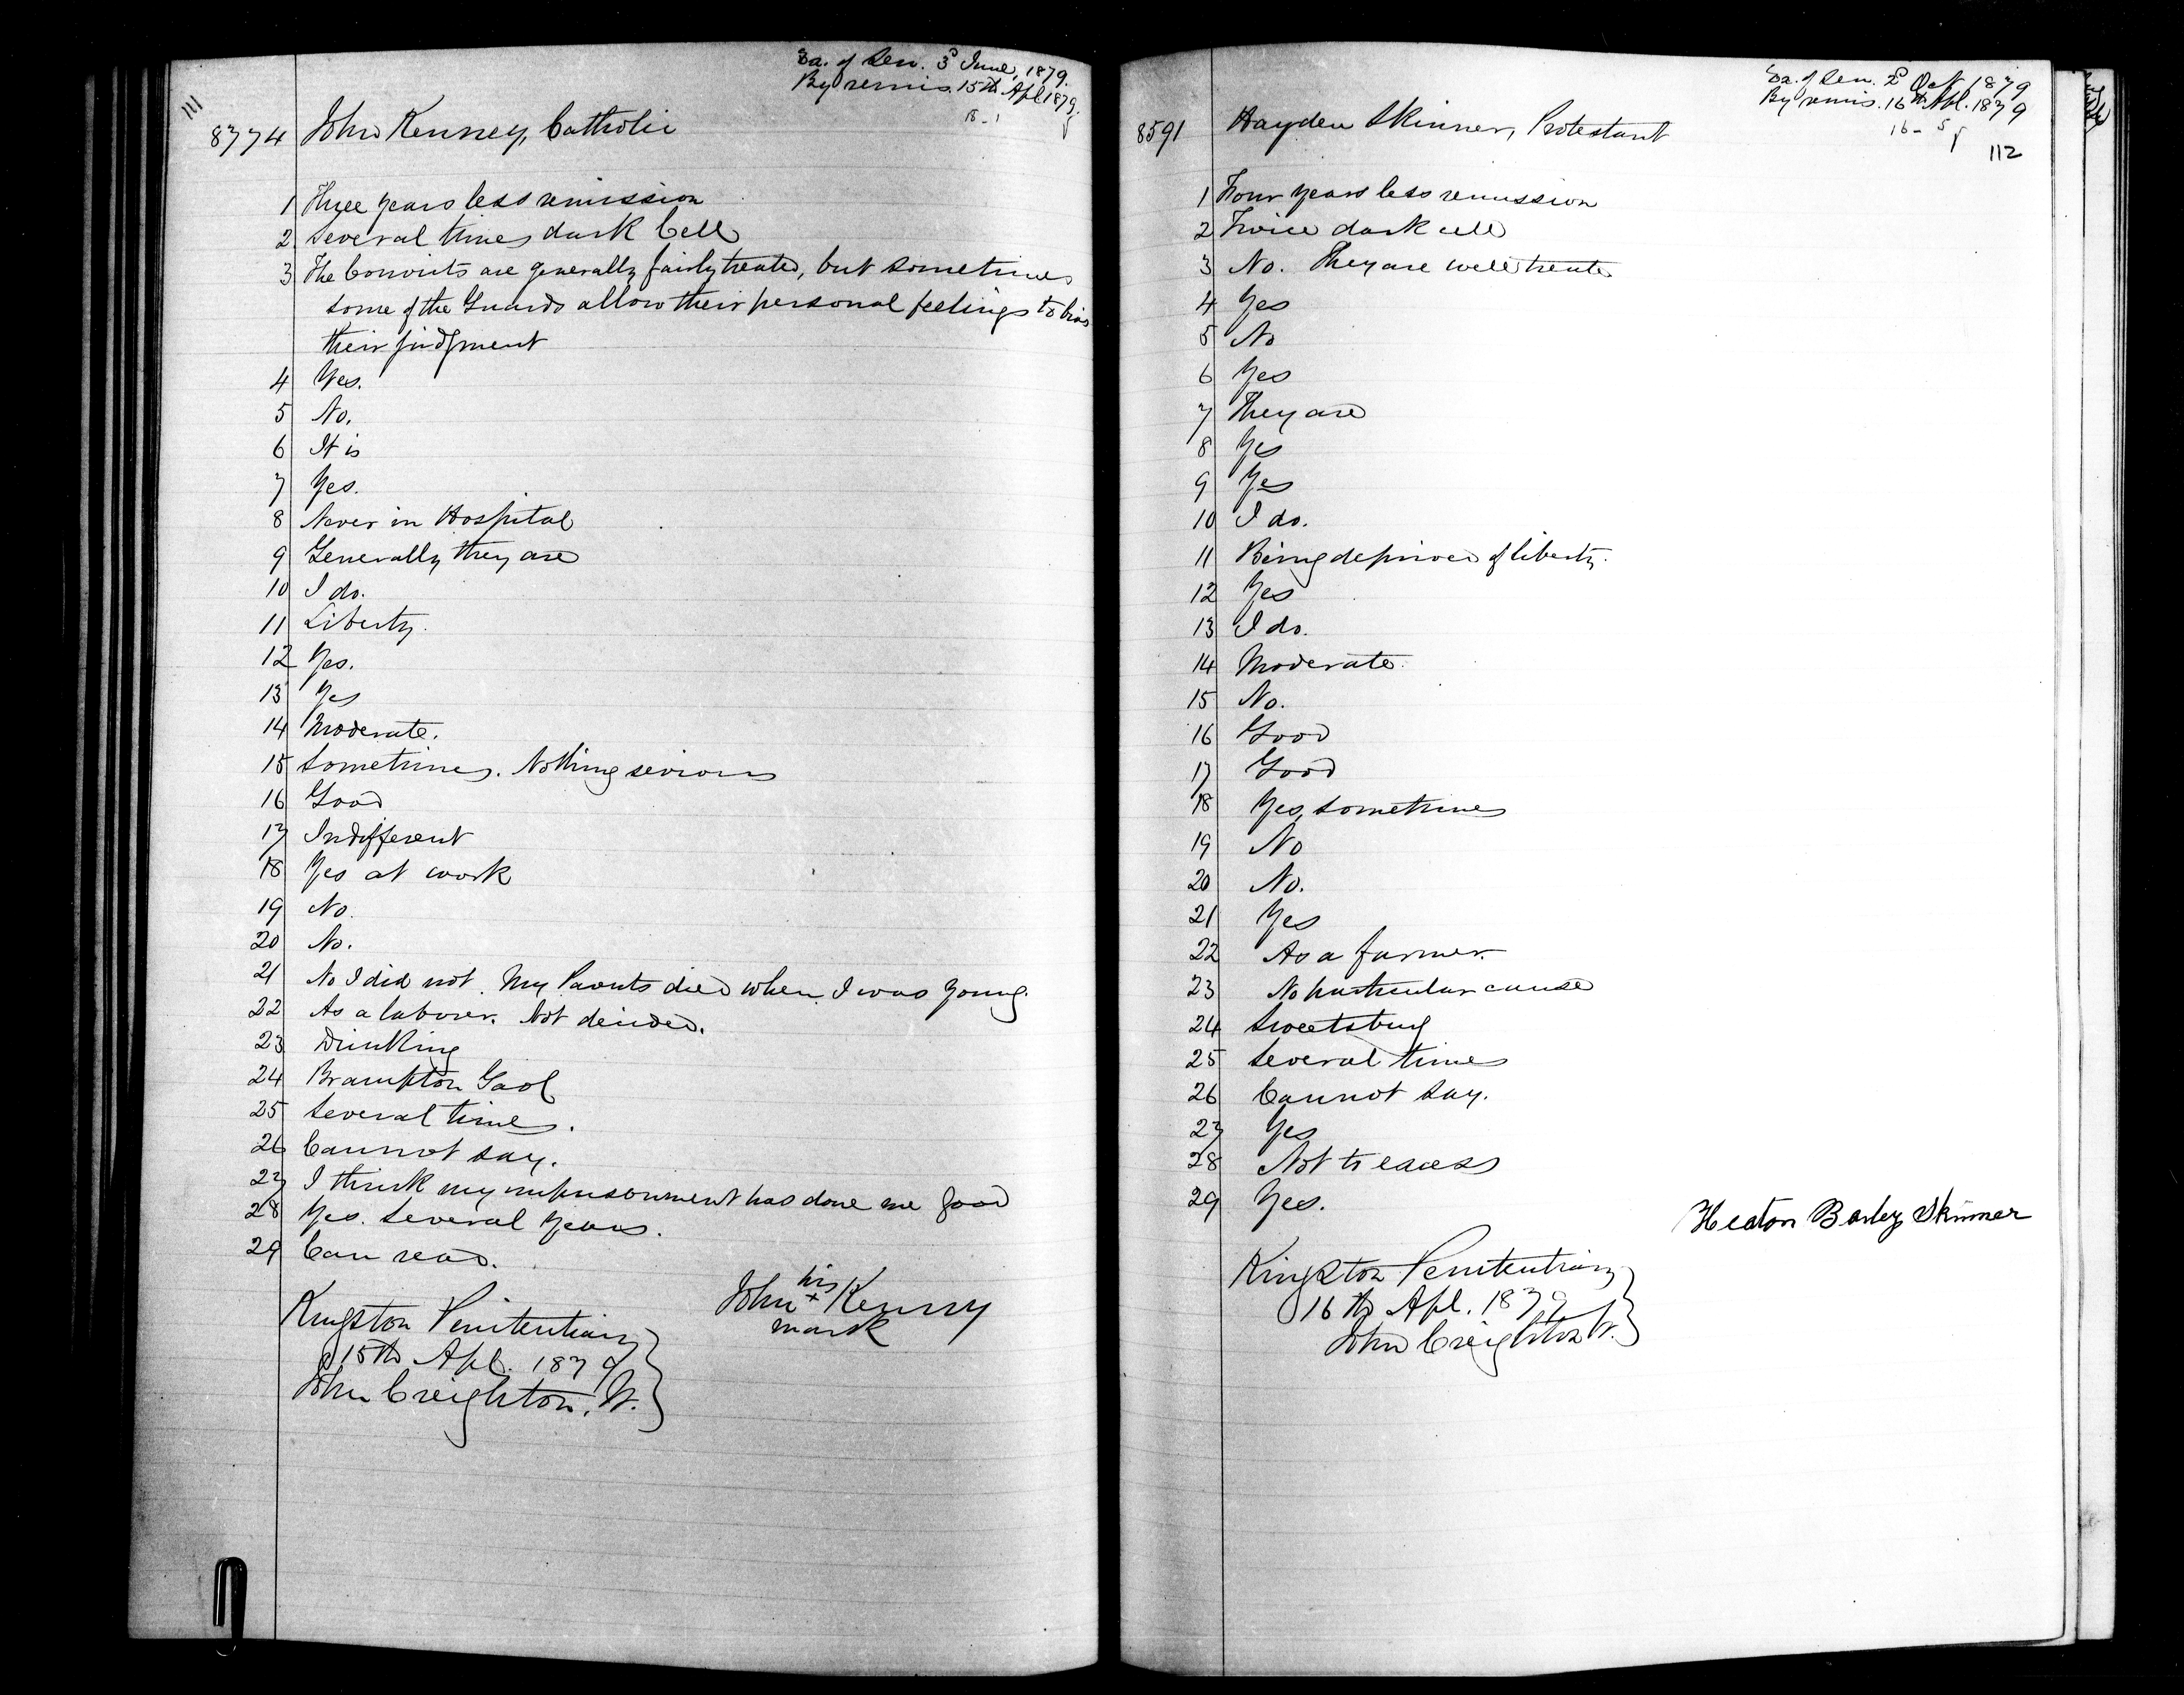 111
Ex. of Sen. 3d June, 1879.
By remis. 15th Apl 1879.
18 - 1
8774 John Kenney, Catholic
1 Three years less remission
2 Several times dark Cell
3 The Convicts are generally fairly treated, but sometimes
some of the Guards allow their personal feelings to bias
their judgment
4 Yes.
5 No.
6 It is
7 Yes.
8 Never in Hospital
9 Generally they are
10 I do.
11 Liberty.
12 Yes.
13 Yes
14 Moderate.
15 Sometimes. Nothing serious
16 Good
17 Indifferent
18 Yes at work
19 No.
20 No.
21 No I did not. My Parents died when I was young.
22 As a laborer. Not decided.
23 Drinking
24 Brampton Gaol
25 Several times.
26 Cannot say.
27 I think my imprisonment has done me good
28 Yes. Several years.
29 Can read.
his
John + Kenny
mark
Kingston Penitentiary
15th Apl. 1879
John Creighton, W.
Ex. of Sen. 2d Oct 1879
By remis. 16th Apl. 1879
16 - 5
112
8591 Hayden Skinner, Protestant
1 Four years less remission
2 Twice dark cell
3 No. They are well treated
4 Yes
5 No
6 Yes
7 They are
8 Yes
9 Yes
10 I do.
11 Being deprived of liberty.
12 Yes
13 I do.
14 Moderate.
15 No.
16 Good
17 Good
18 Yes, sometimes
19 No
20 No.
21 Yes
22 As a farmer.
23 No particular cause
24 Sweetsburg
25 Several times
26 Cannot say.
27 Yes
28 Not to excess
29 Yes.
Heaton Skinner
Kingston Penitentiary
16th Apl. 1879
John Creighton W.